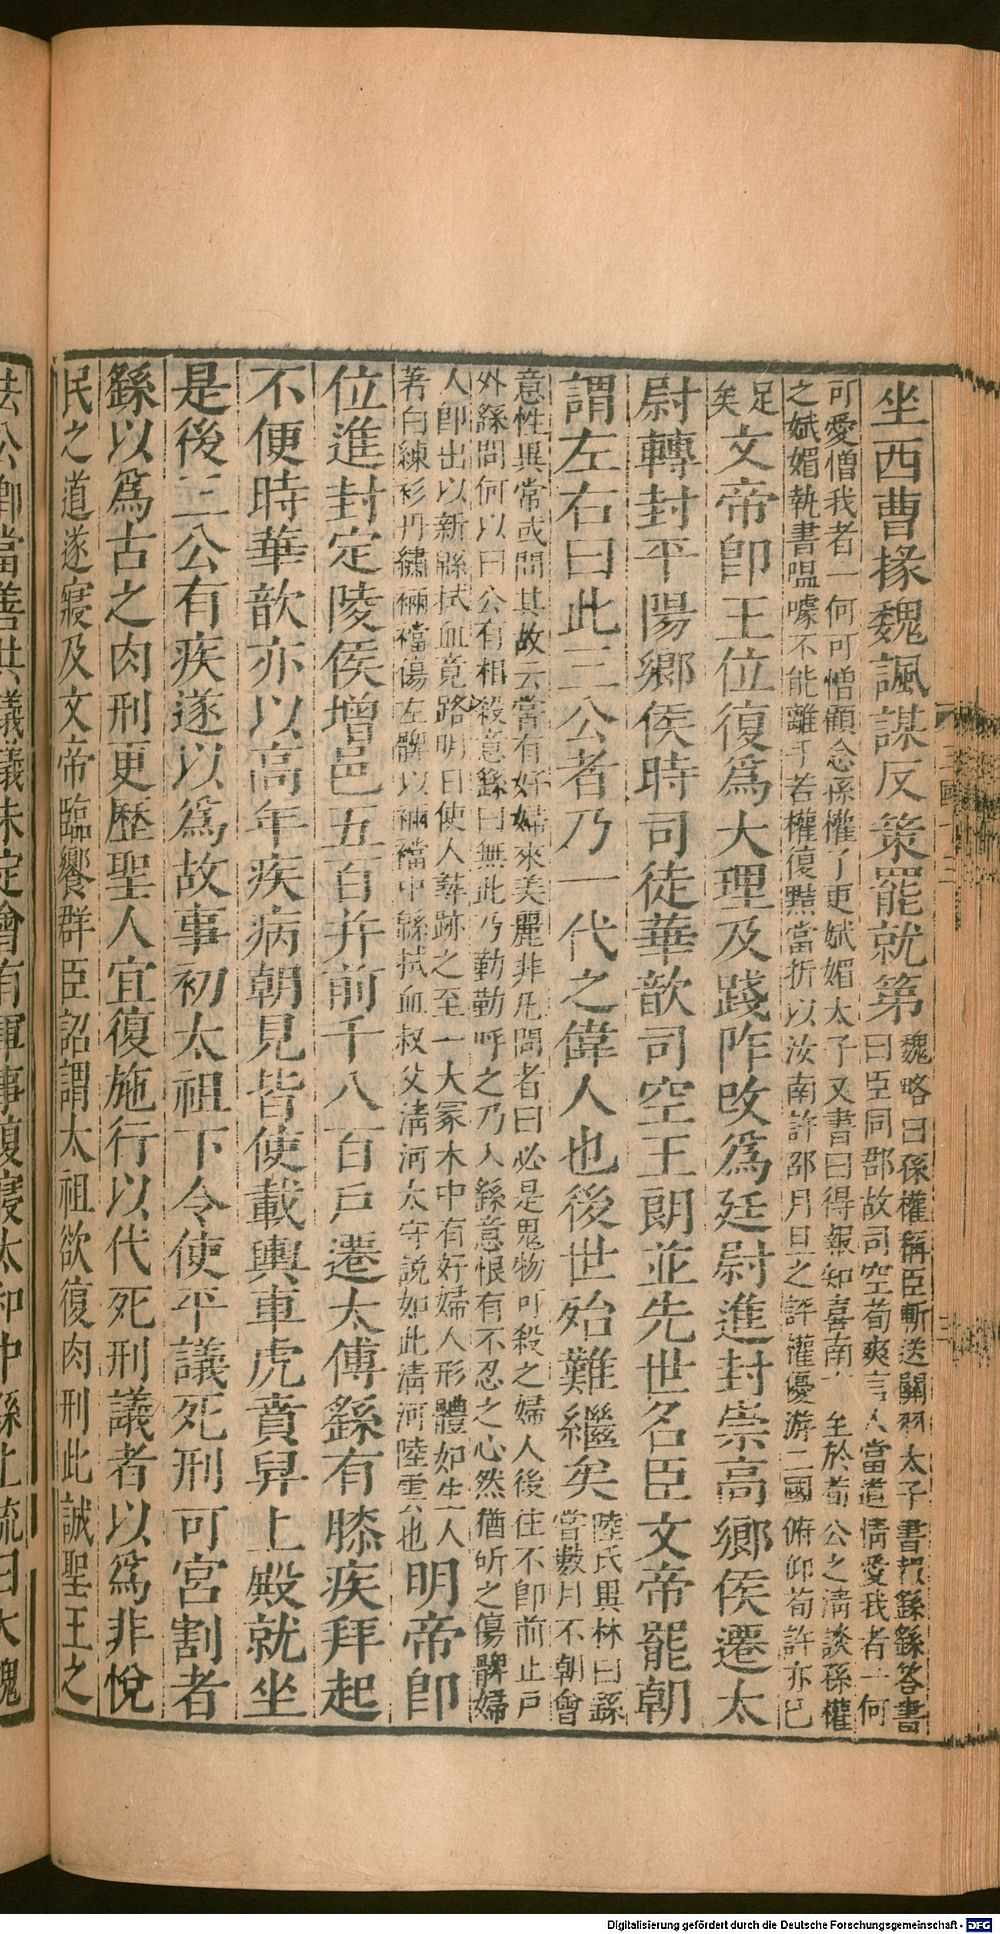 坐西曹掾魏諷謀反策罷就第魏略曰孫權稱臣斬送關羽太子書報繇繇答書
曰臣同郡故司空荀爽言人當道情愛我者一何
可愛憎我者一何可憎顧念孫權了更娬媚太子又書曰得報知喜南 至於荀公之清談孫權
之娬媚執書嗢噱不能離手若權復黠當折以汝南許邵月旦之評權優游二國俯仰荀許亦已
足矣文帝卽王位復爲大理及踐阼改爲廷尉進封崇高鄉侯遷太
尉轉封平陽鄉侯時司徒華歆司空王朗並先世名臣文帝罷朝
謂左右曰此三公者乃一代之偉人也後世殆難繼矣陸氏異林曰繇
嘗數月不朝會
意性異常或問其故云嘗有好婦來美麗非凡問者曰必是鬼物可殺之婦人後往不卽前止戸
外繇問何以曰公有相殺意繇曰無此乃勤勤呼之乃入繇意恨有不忍之心然猶斫之傷髀婦
人卽出以新緜拭血竟路明日使人尋跡之至一大冢木中有好婦人形體如生人
著白練衫丹繡裲襠傷左髀以裲襠中緜拭血叔父清河太守說如此清河陸雲也明帝卽
位進封定陵侯增邑五百并前千八百戸遷太傅繇有膝疾拜起
不便時華歆亦以高年疾病朝見皆使載輿車虎賁舁上殿就坐
是後三公有疾遂以爲故事初太祖下令使平議死刑可宮割者
繇以爲古之肉刑更歷聖人宜復施行以代死刑議者以爲非悅
民之道遂寢及文帝臨饗群臣詔謂太祖欲復肉刑此誠聖王之
法公卿當善共議議未定會有軍事復寢太和中繇上疏曰大魏
三國十三
Digitalisierung gefördert durch die Deutsche Forschungsgemeinschaft - DFG